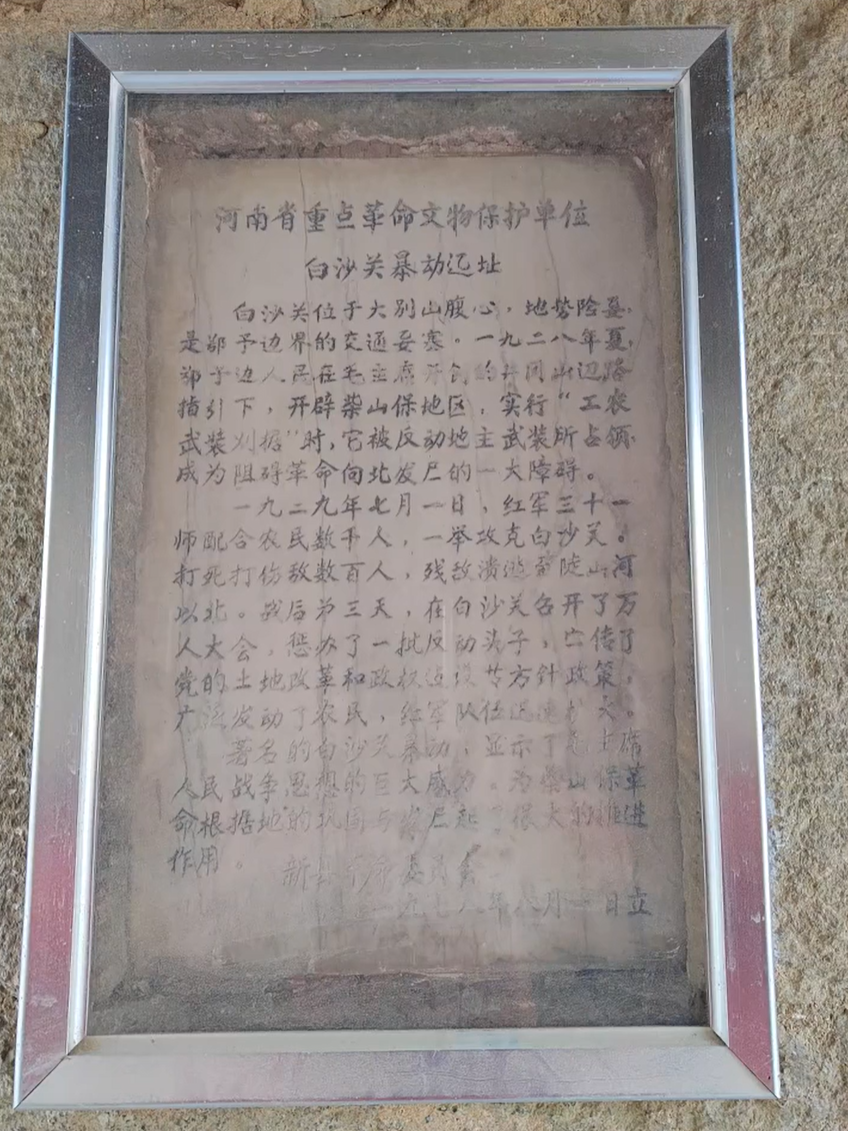 河南省重点革命文物保护单位
白沙关暴动迈址
白沙关位于大别山腹心，地势险要，
是鄂予边界的交通要塞。一九二八年夏，
鄂予边人民在毛主席开创的井冈山道路
指引下，开辟柴山保地区，实行“工农
武装刈据”时，它被反动地主武装所占领，
成为阻碍革命向北发尸的一大障碍。
一九二九年七月一日，红军三十一
师配合农民数千人，一举攻克白沙关。
打死打伤敌数百人，残敌溃逃至陡山河
以北。战后第三天，在白沙关召开了万
人大会，惩办了一批反动头子，宣传了
党的土地改革和政权建设等方针政策，
广泛发动了农民，红军队伍迅速扩大。
著名的白沙关暴动，显示了毛主席
人民战争思想的巨大威力。为柴山保革
命根据地的巩固与发尸起了很大的推进
作用。
新县革命委员会
一九七八年八月一日立